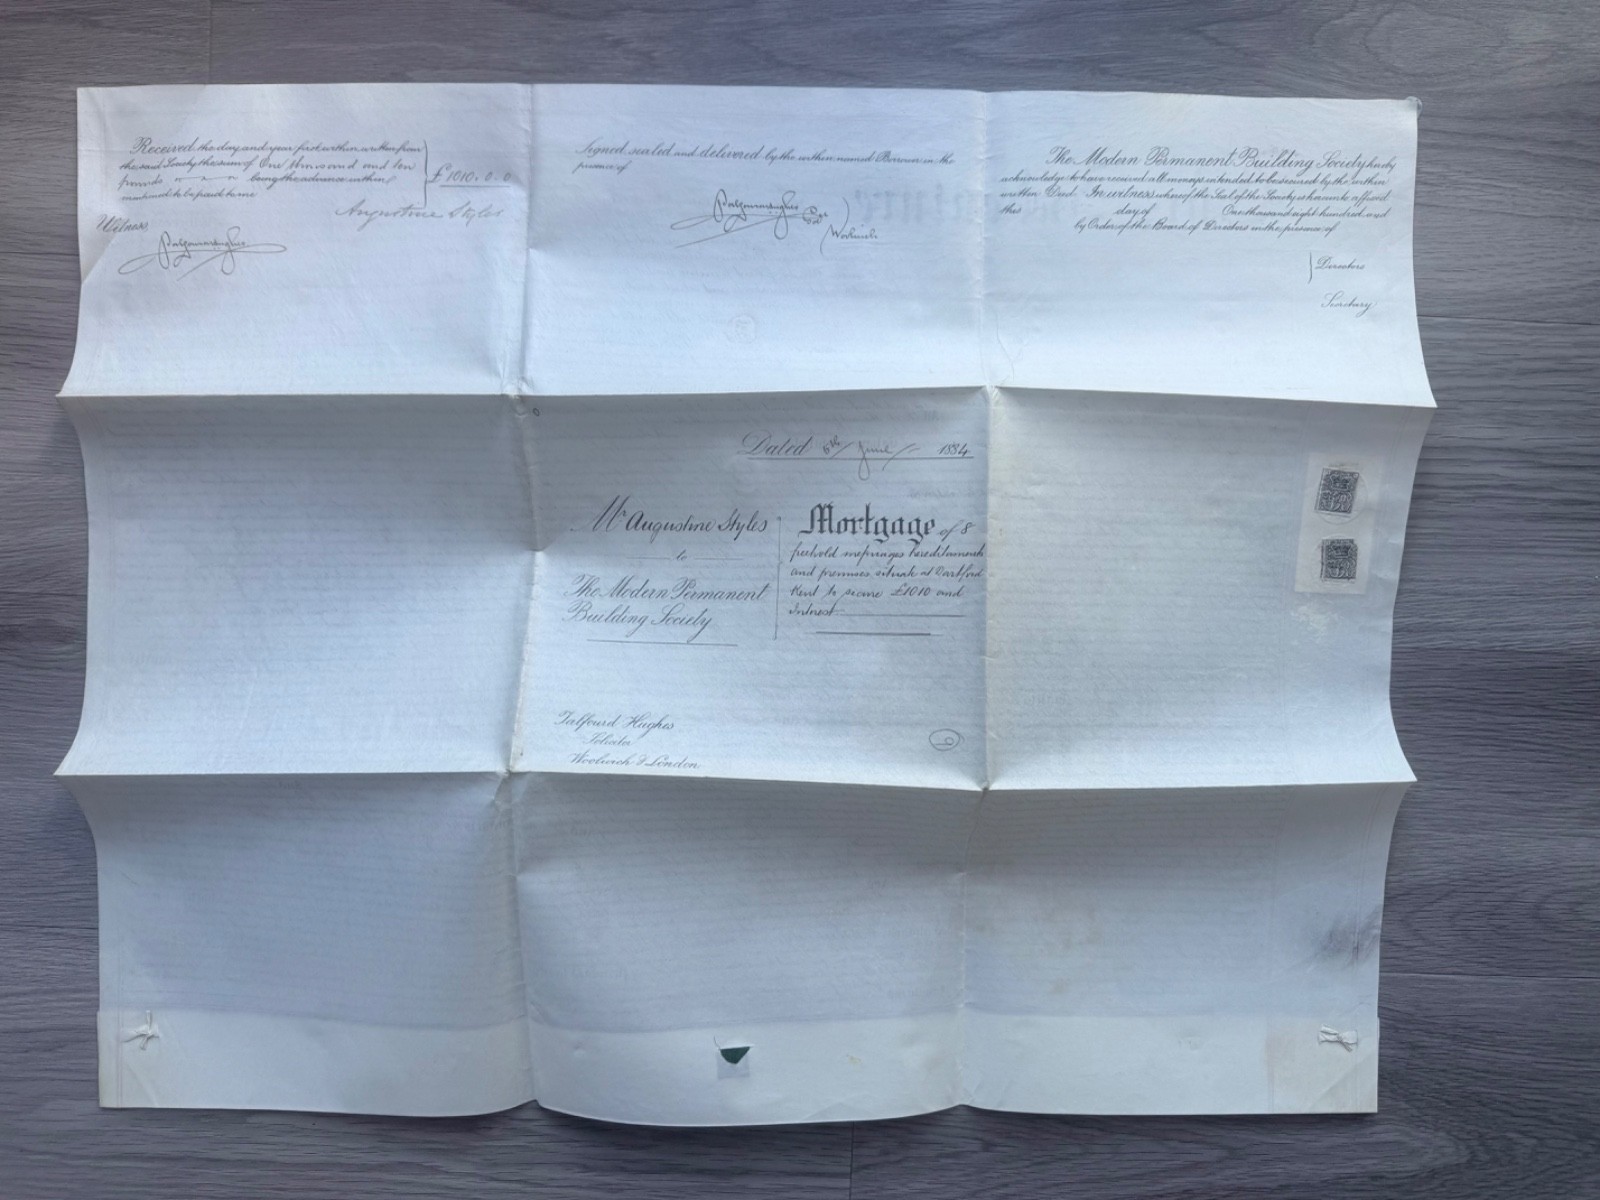 Received the day and year first within written from
the said Society the sum of One thousand and ten
pounds being the advance within
mentioned to be paid to me
£1010. 0. 0
Augustine Styles
Witness
Signed sealed and delivered by the within named Borrower in the
presence of
Woolwich
The Modern Permanent Building Society hereby
acknowledge to have received all moneys intended to be secured by the within
written Deed. In witness whereof the Seal of the Society is hereunto affixed
this day of One thousand eight hundred and
by Order of the Board of Directors in the presence of
Directors
Secretary
Dated 6th June 1884
Mr Augustine Styles
to
The Modern Permanent
Building Society
Mortgage of 8
freehold messuages hereditaments
and premises situate at Dartford
Kent to secure £1010 and
Interest
Talfourd Hughes
Solicitor
Woolwich & London